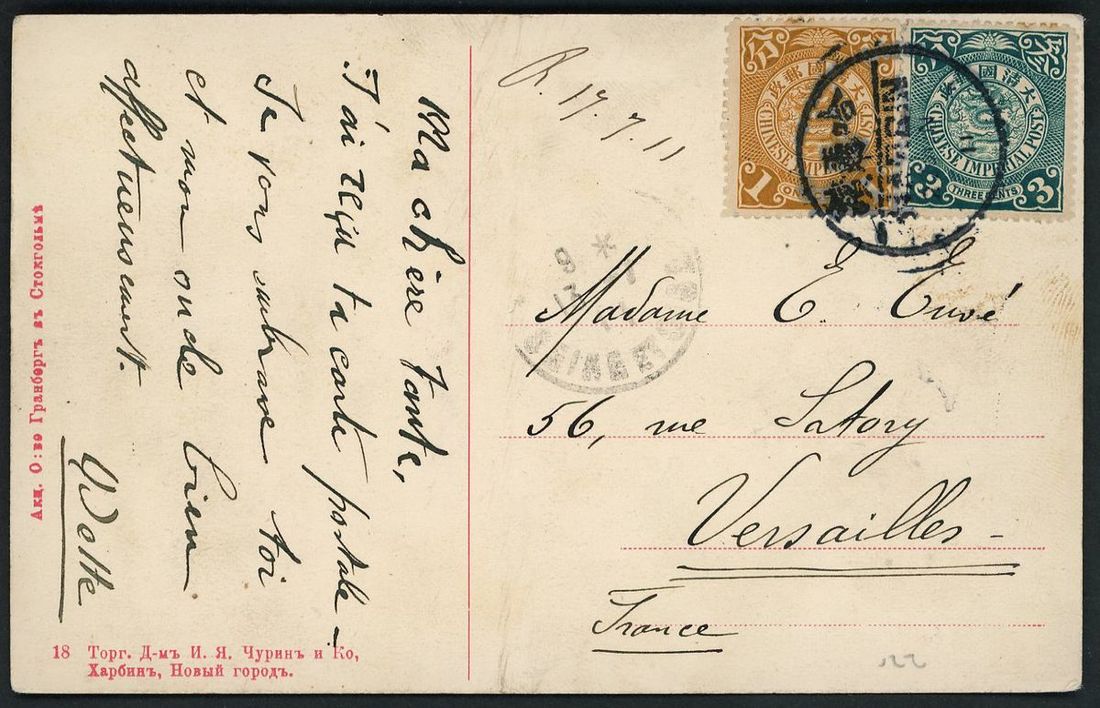 Ma chère tante,
J'ai reçu ta carte postale –
Je vous embrasse toi
et mon oncle bien
affectueusement.
R. 17.7.11
大清國郵政
CHINESE IMPERIAL POST
1
分
大清國郵政
CHINESE IMPERIAL POST
3 THREE CENTS 3
HARBIN
Madame E.
56, rue Satory
Versailles –
France
Акц. О:во Гранбергъ въ Стокгольмѣ
18 Торг. Д-мъ И. Я. Чуринъ и Ко,
Харбинъ, Новый городъ.